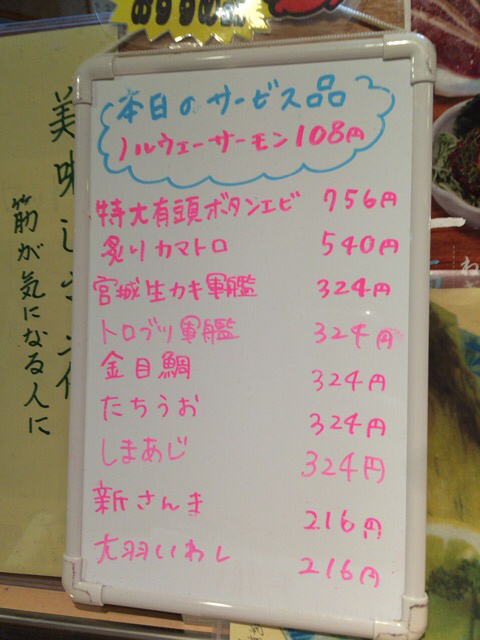 おすすめ
本日のサービス品
ノルウェーサーモン108円
特大有頭ボタンエビ 756円
炙りカマトロ 540円
宮城生カキ軍艦 324円
トロブツ軍艦 324円
金目鯛 324円
たちうお 324円
しまあじ 324円
新さんま 216円
大羽いわし 216円
美味し
筋が気になる人に